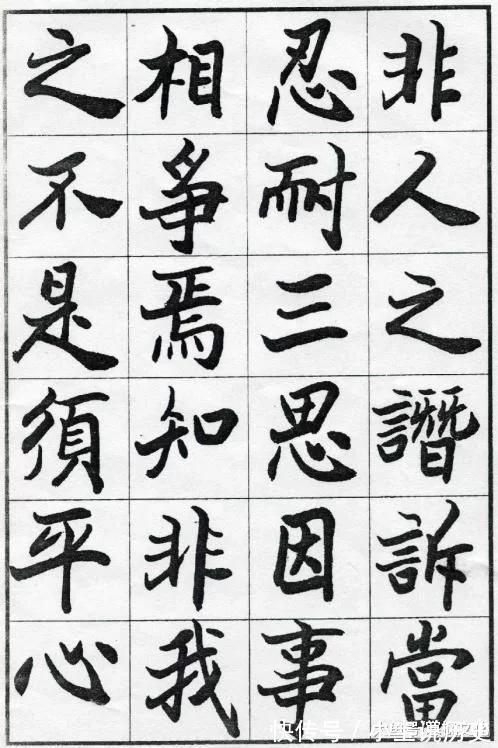 非人之譖訴當
忍耐三思因事
相爭焉知非我
之不是須平心
快传号/